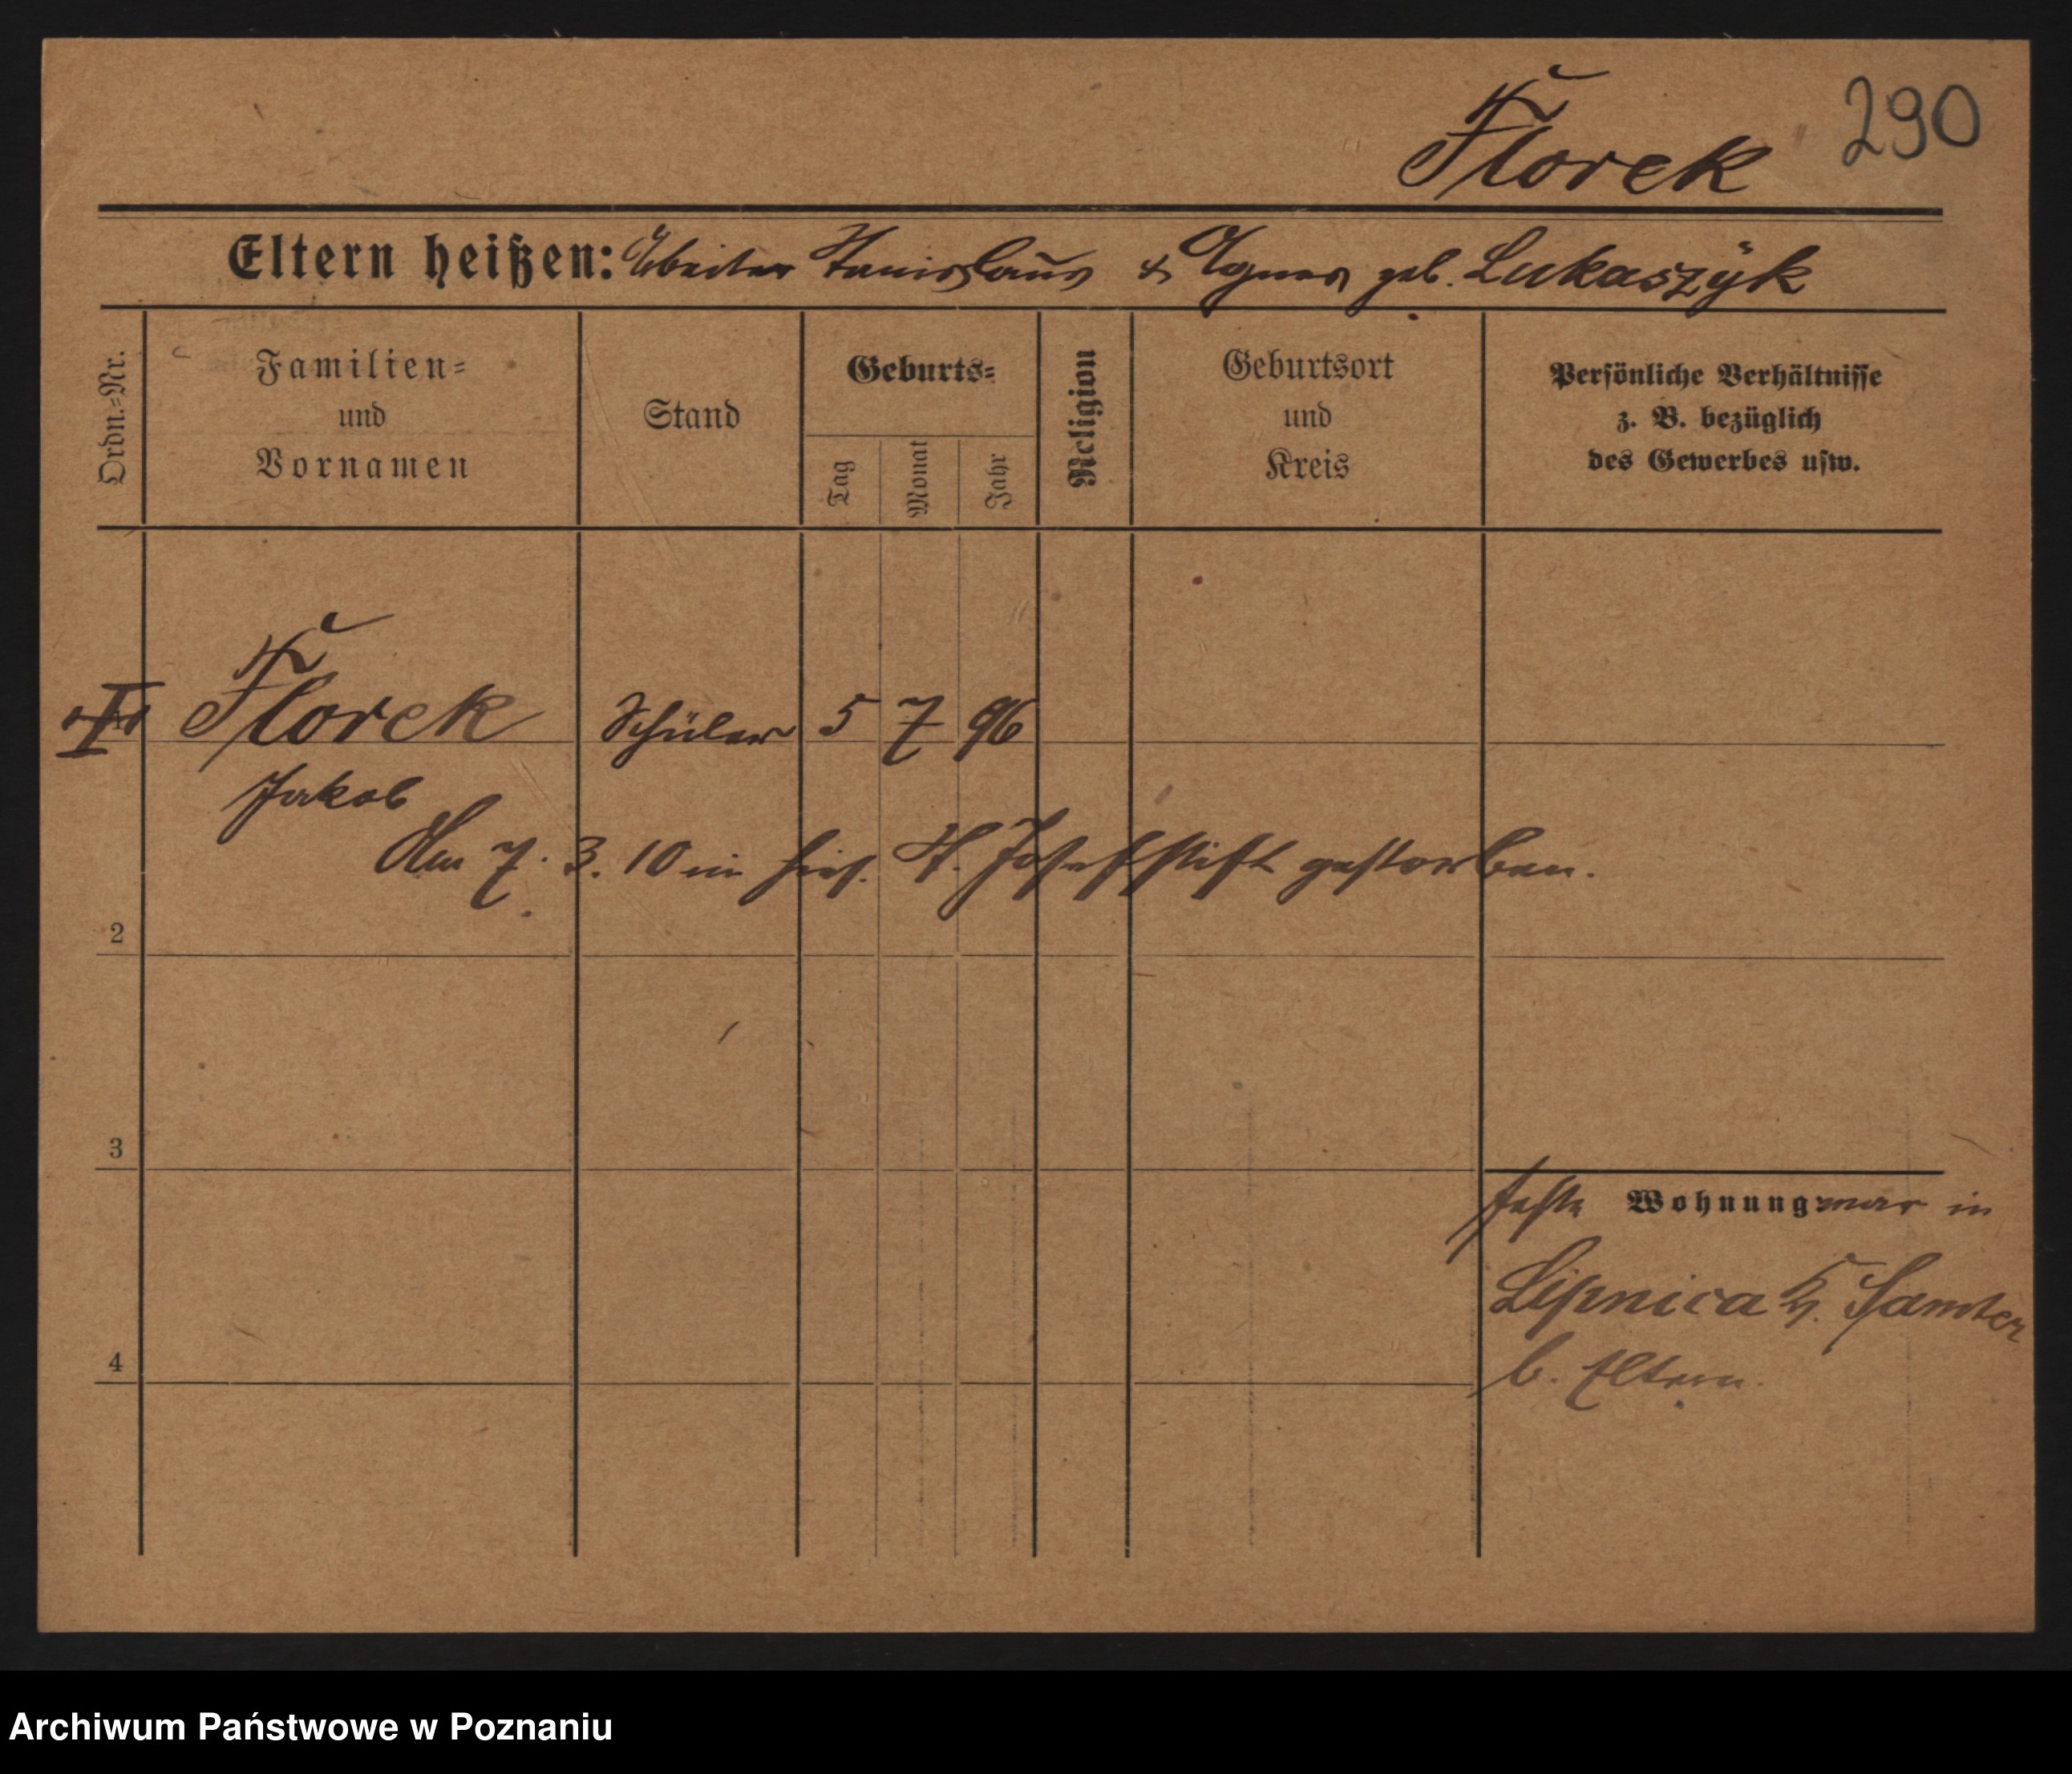 Florek 290
Eltern heißen: Arbeiter Stanislaus & Agnes geb. Lukaszÿk
Ordn.=Nr.
Familien=
und
Vornamen
Stand
Geburts=
Tag
Monat
Jahr
Religion
Geburtsort
und
Kreis
Persönliche Verhältnisse
z. B. bezüglich
des Gewerbes usw.
I Florek Schüler 5 7 96
Jakob
Am 7. 3. 10 im hies. St. Josefstift gestorben.
2
3
feste Wohnung war in
Lipnica K. Samter
4 b. Eltern.
Archiwum Państwowe w Poznaniu